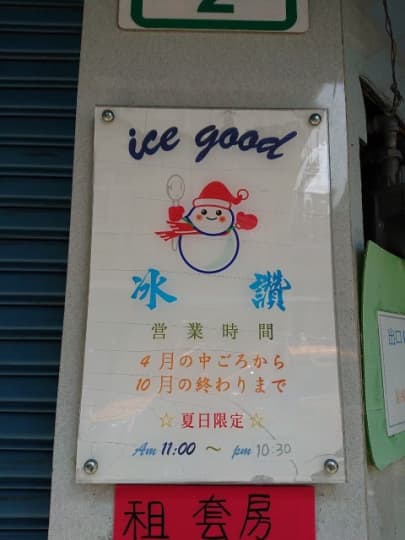 2
ice good
冰 讚
営業時間
4月の中ごろから
10月の終わりまで
☆夏日限定☆
Am 11:00 ～ pm 10:30
出口
租 套房